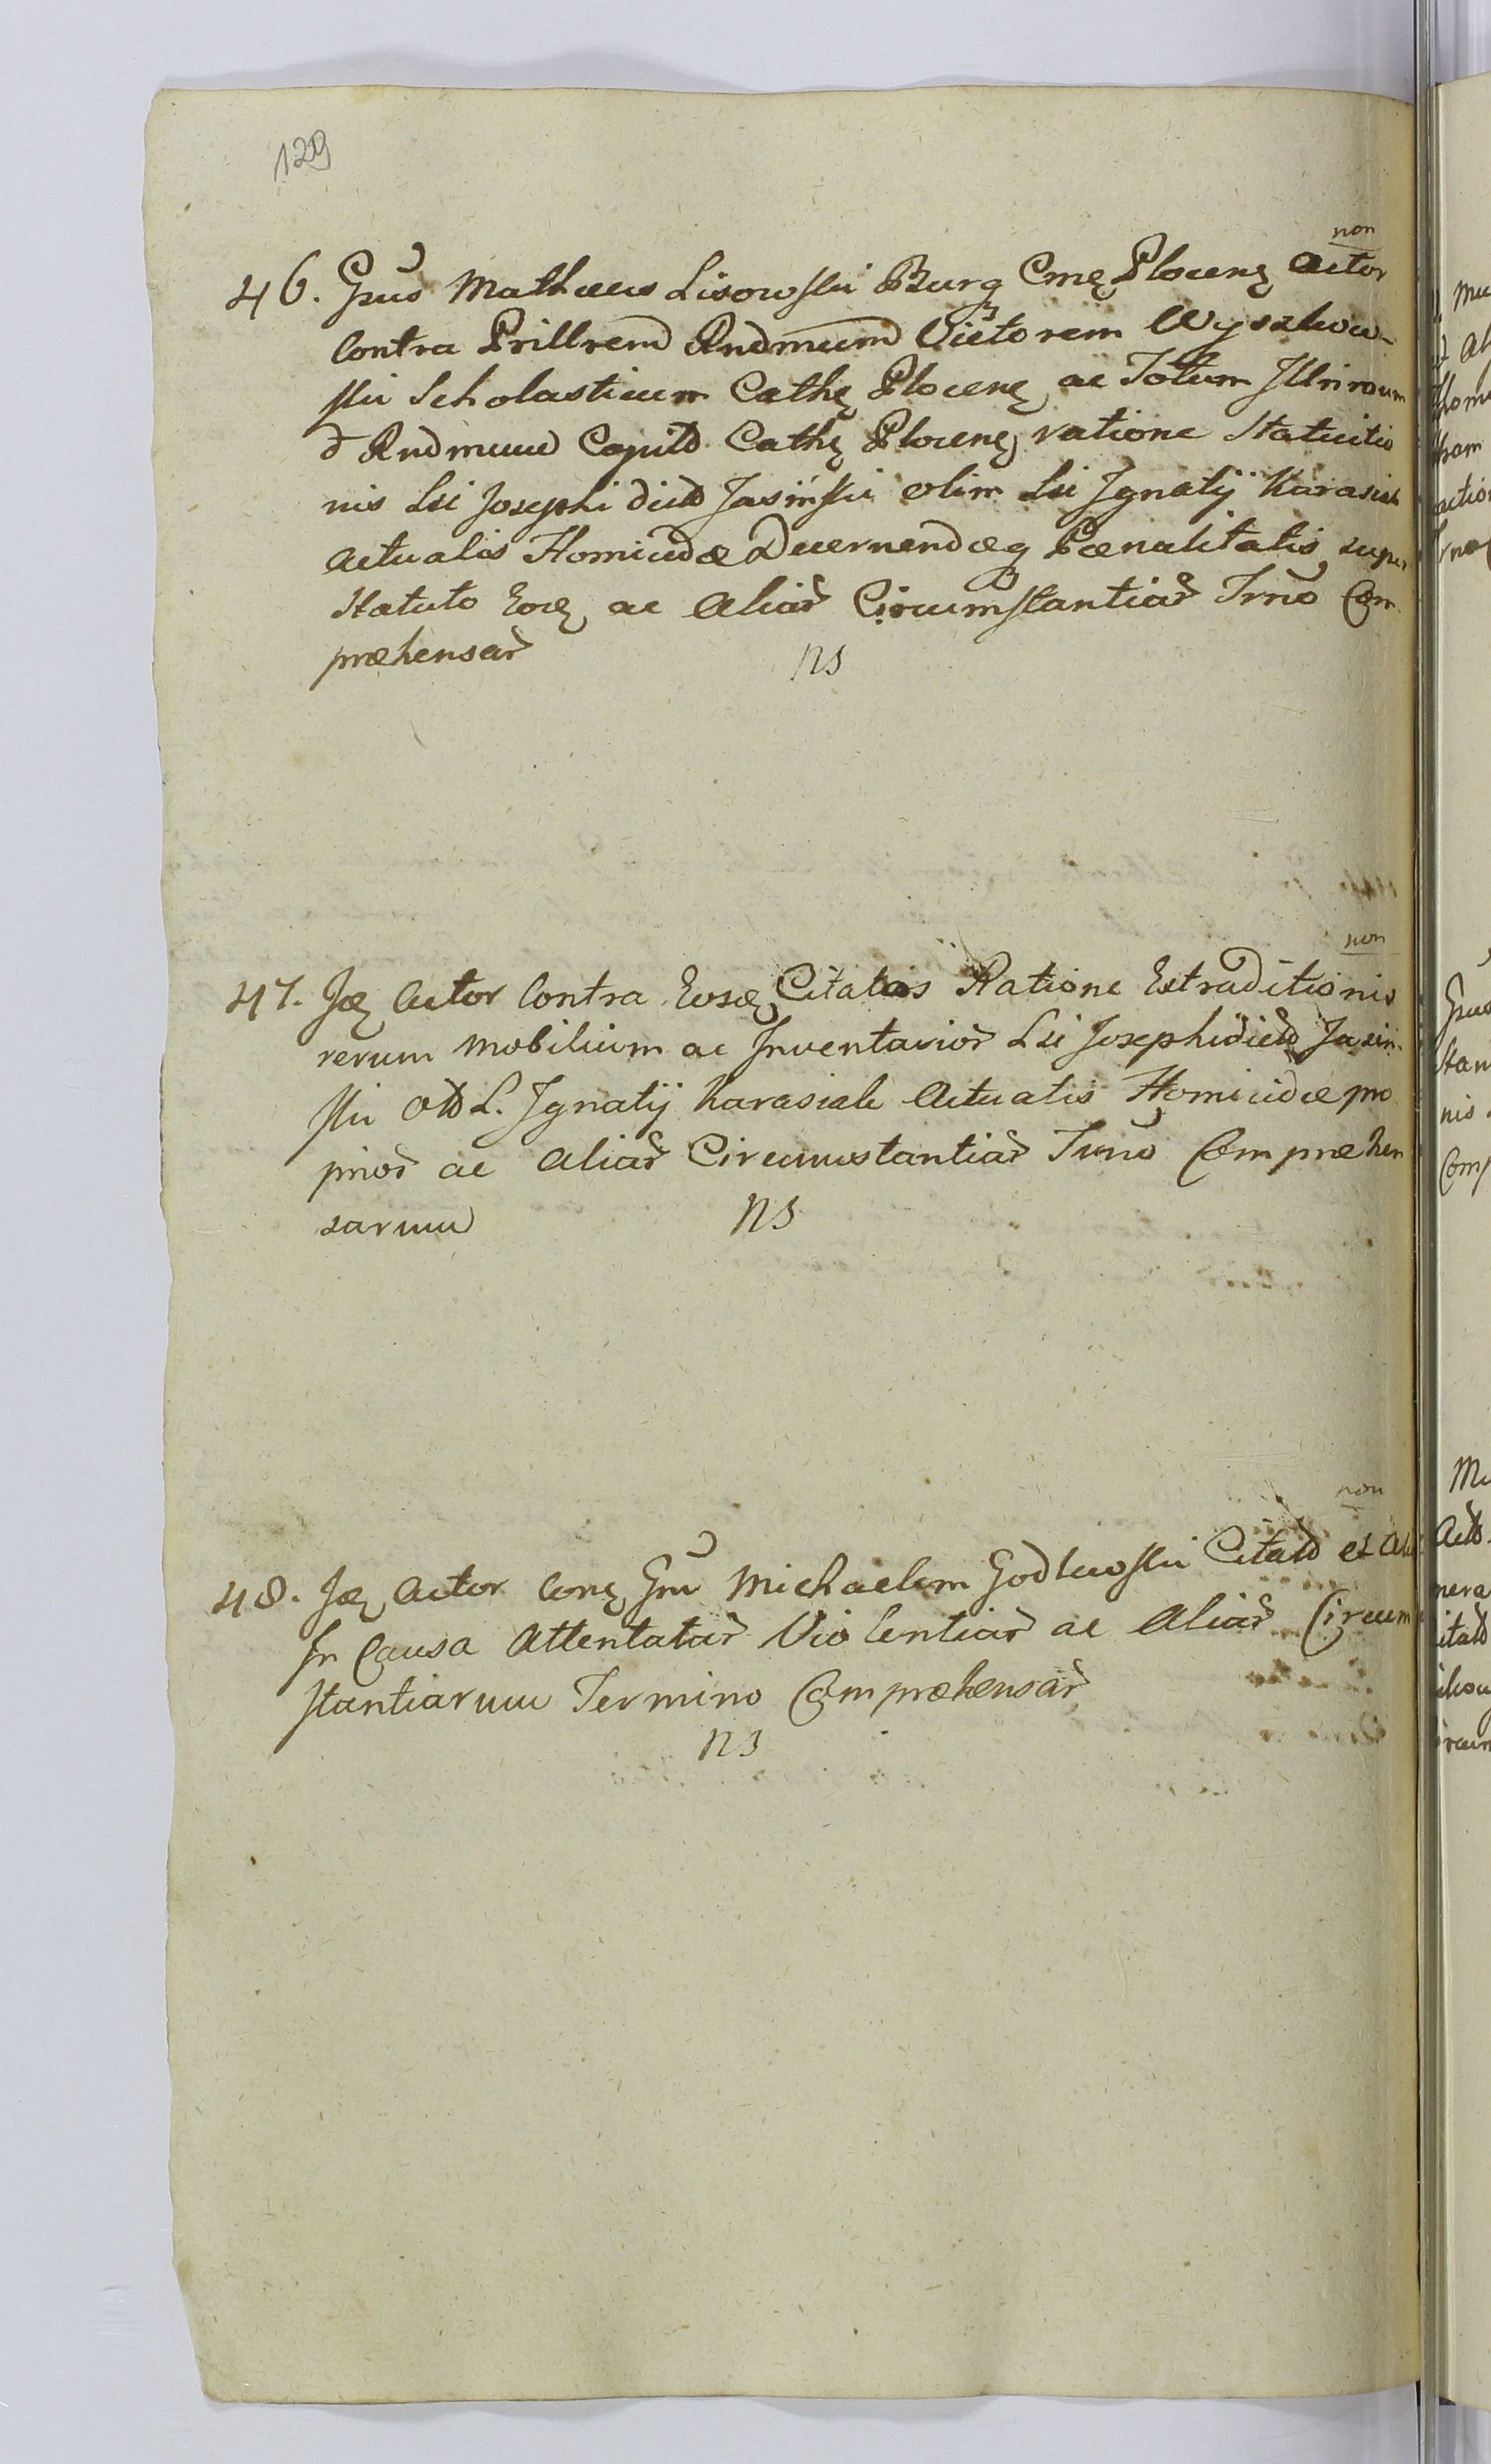 129
non
46. Gnus Mathaeus Lisowski Burg Cme Plocens Actor
Contra Prillrem Rndmum Victorem Wyszkow-
ski Scholasticum Cathe Plocens ac Totum Illrmum
& Rndmum Capitd Cathe Plocens ratione Statuitio
nis Lsi Josephi dictd Jasiński olim Lsi Ignatij Karasiak
Actualis Homicidæ Decernendæq Pœnalitatis super
Statuto Eoq ac Aliar Circumstantiar Trno Com
præhensar
ns
non
47. Jdq Actor Contra Eosdq Citatos Ratione Extraditionis
rerum Mobilium ac Inventarior Lsi Josephi dictd Jasiń-
ski Otd L. Ignatij Karasiak Actualis Homicidæ pro
prior ac Aliar Circumstantiar Trno Compræhen
sarum
ns
non
48. Jdq Actor Conq Gnu Michaelem Godlewski Citatd et Al
In Causa Attentatar Violentiar ac Aliar Circum
stantiarum Termino Compræhensar
ns